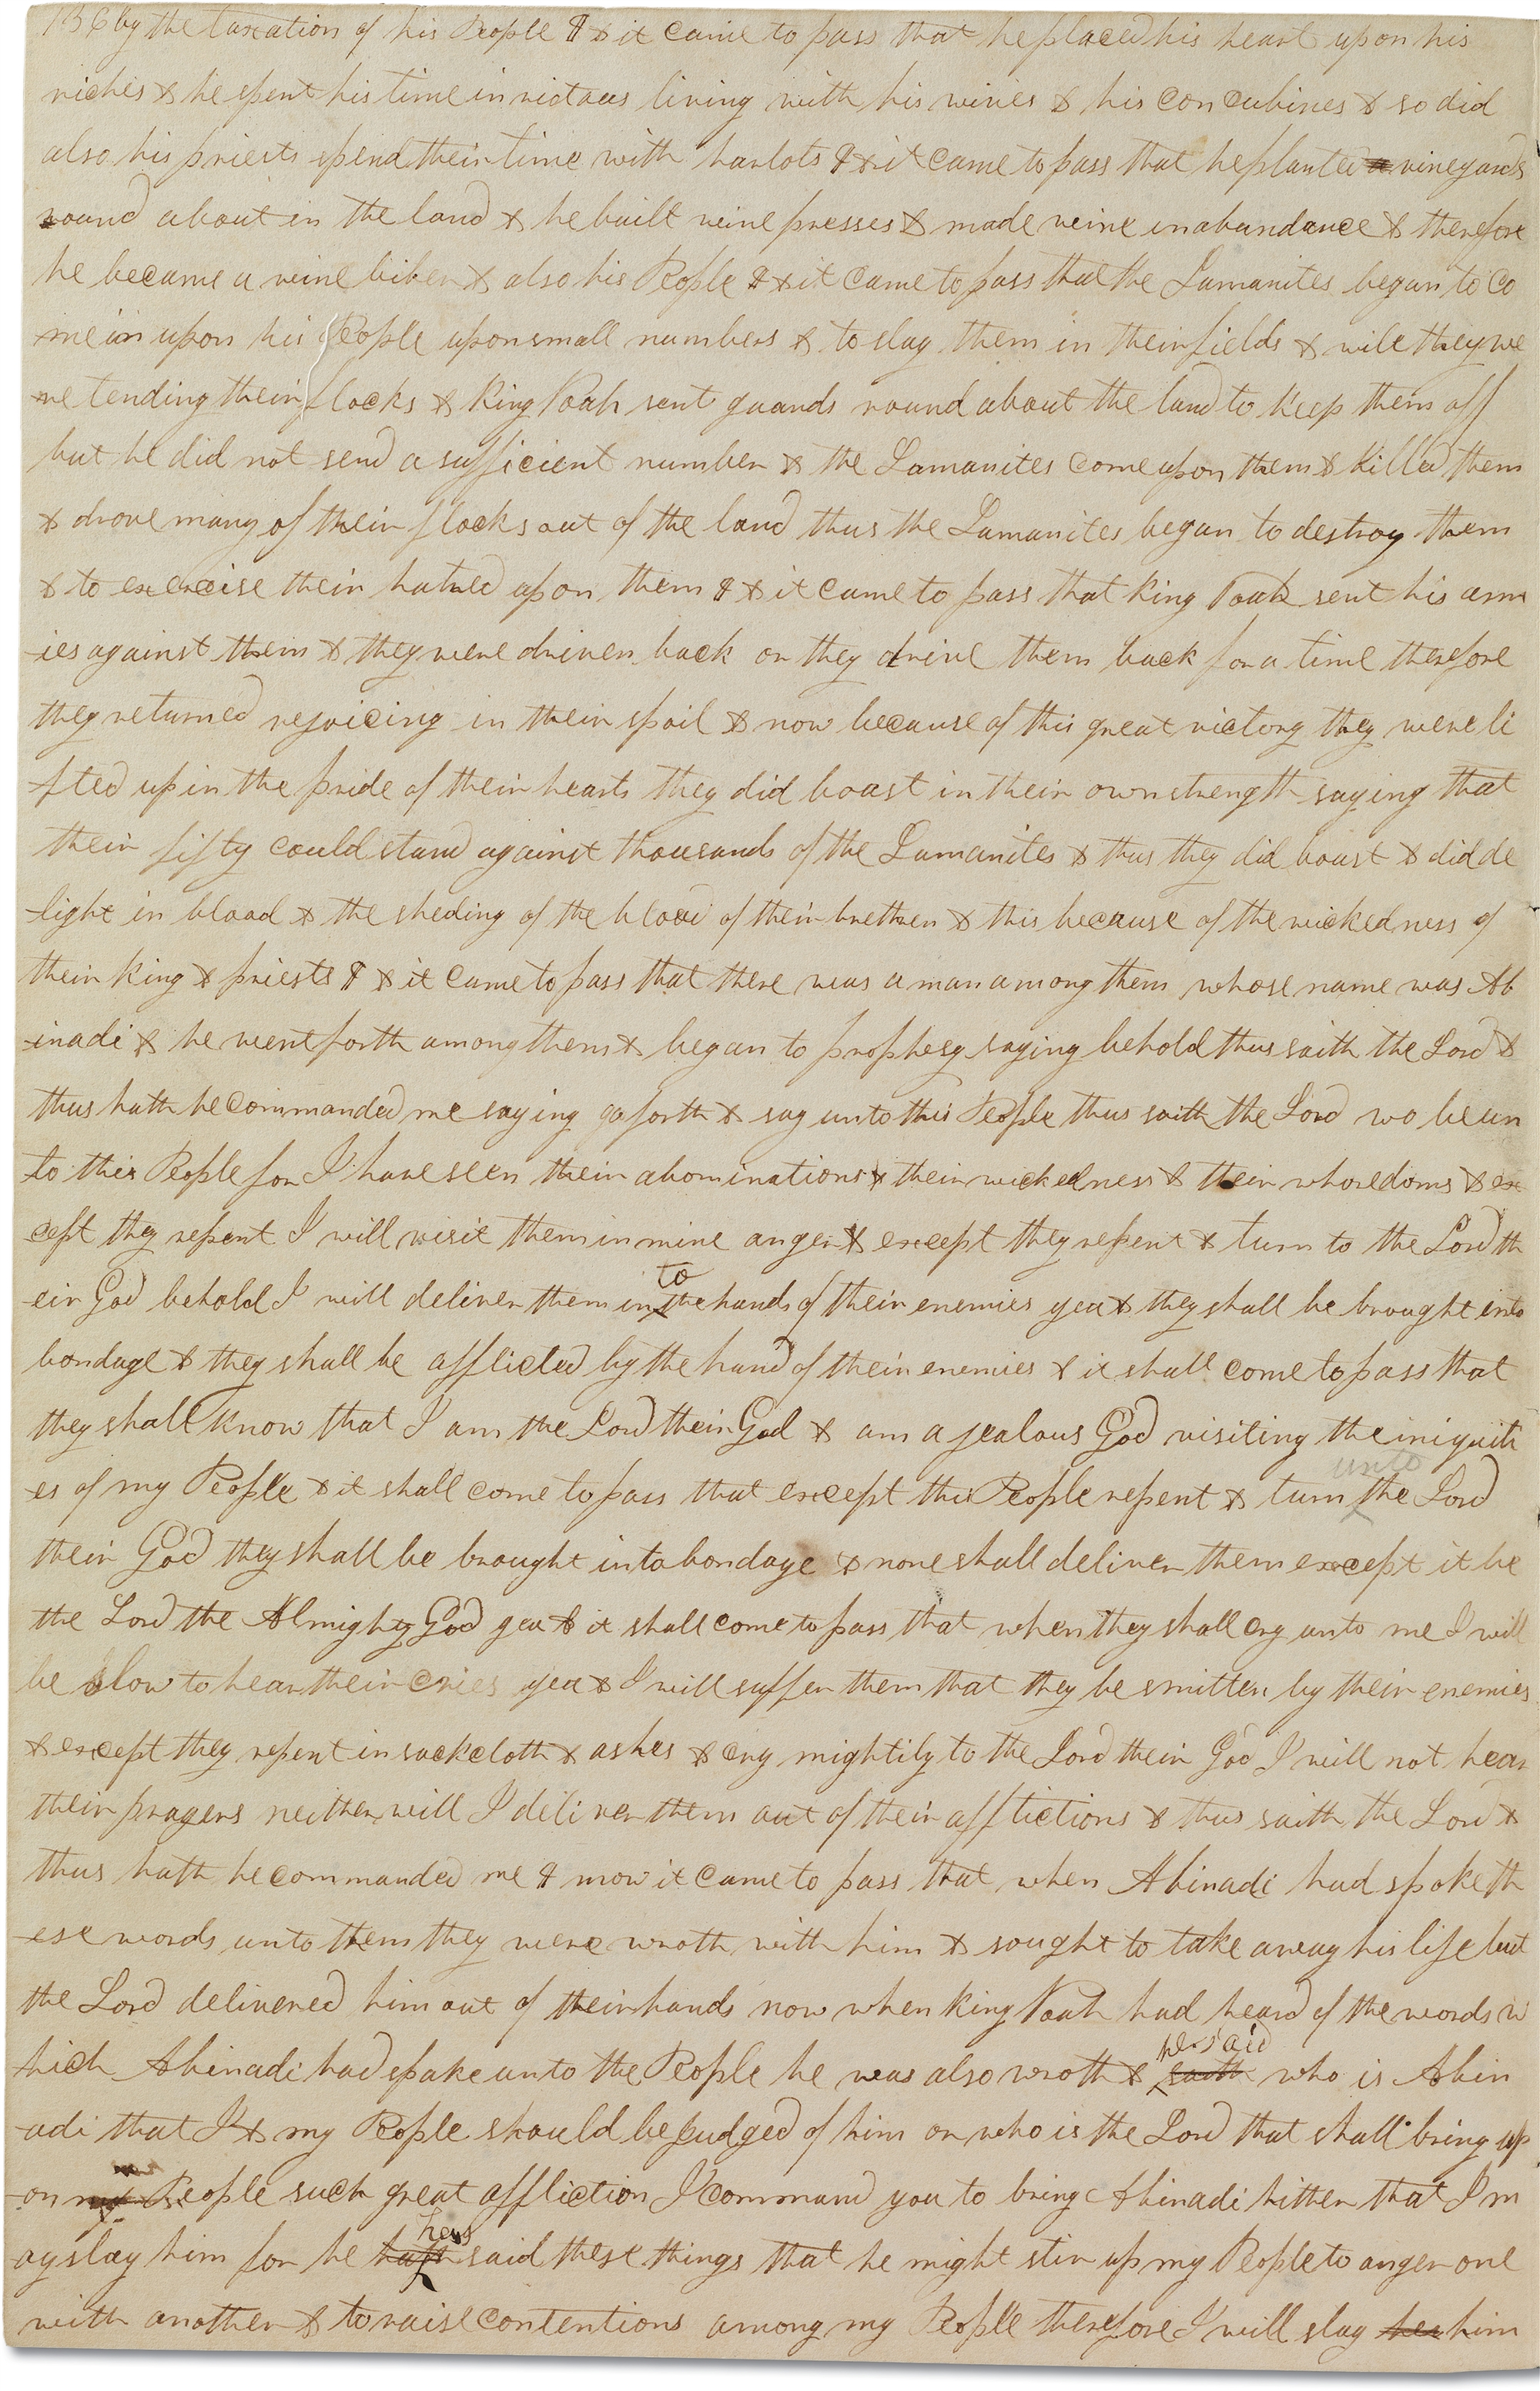 136 by the taxation of his People ¶ & it came to pass that he placed his heart upon his
riches & he spent his time in riotous living with his wives & his concubines & so did
also his priests spend their time with harlots ¶ & it came to pass that he planted a vineyards
round about in the land & he built wine presses & made wine in abundance & therefore
he became a wine biber & also his People ¶ & it came to pass that the Lamanites began to co
-me in upon his People upon small numbers & to slay them in their fields & wile they we
-re tending their flocks & King Noah sent guards round about the land to keep them off
but he did not send a sufficient number & the Lamanites come upon them & killed them
& drove many of their flocks out of the land thus the Lamanites began to destroy them
& to exercise their hatred upon them ¶ & it came to pass that King Noah sent his arm
-ies against them & they were driven back or they drive them back for a time therefore
they returned rejoicing in their spoil & now because of this great victory they were li
-fted up in the pride of their hearts they did boast in their own strength saying that
their fifty could stand against thousands of the Lamanites & thus they did boast & did de
-light in blood & the sheding of the blood of their brethren & this because of the wickedness of
their King & priests ¶ & it came to pass that there was a man among them whose name was Ab
-inadi & he went forth among them & began to prophesy saying behold thus saith the Lord &
thus hath he commanded me saying go forth & say unto this People thus saith the Lord wo be un
-to this People for I have seen their abominations & their wickedness & their whoredoms & ex
-cept they repent I will visit them in mine anger & except they repent & turn to the Lord th
to
-eir God behold I will deliver them in the hands of their enemies yea & they shall be brought into
bondage & they shall be afflicted by the hand of their enemies & it shall come to pass that
they shall know that I am the Lord their God & am a jealous God visiting the iniquiti
unto
-es of my People & it shall come to pass that except this People repent & turn the Lord
their God they shall be brought into bondage & none shall deliver them except it be
the Lord the Almighty God yea & it shall come to pass that when they shall cry unto me I will
be slow to hear their cries yea & I will suffer them that they be smitten by their enemies
& except they repent in sackcloth & ashes & cry mightily to the Lord their God I will not hear
their prayers neither will I deliver them out of their afflictions & thus saith the Lord &
thus hath he commanded me ¶ & now it came to pass that when Abinadi had spoke th
-ese words unto them they were wroth with him & sought to take away his life but
the Lord delivered him out of their hands now when King Noah had heard of the words w
he said
-hich Abinadi had spake unto the People he was also wroth & saith who is Abin
-adi that I & my People should be judged of him or who is the Lord that shall bring up
-on my People such great affliction I command you to bring Abinadi hither that I m
has
-ay slay him for he hath said these things that he might stir up my People to anger one
with another & to raise contentions among my People therefore I will slay her him